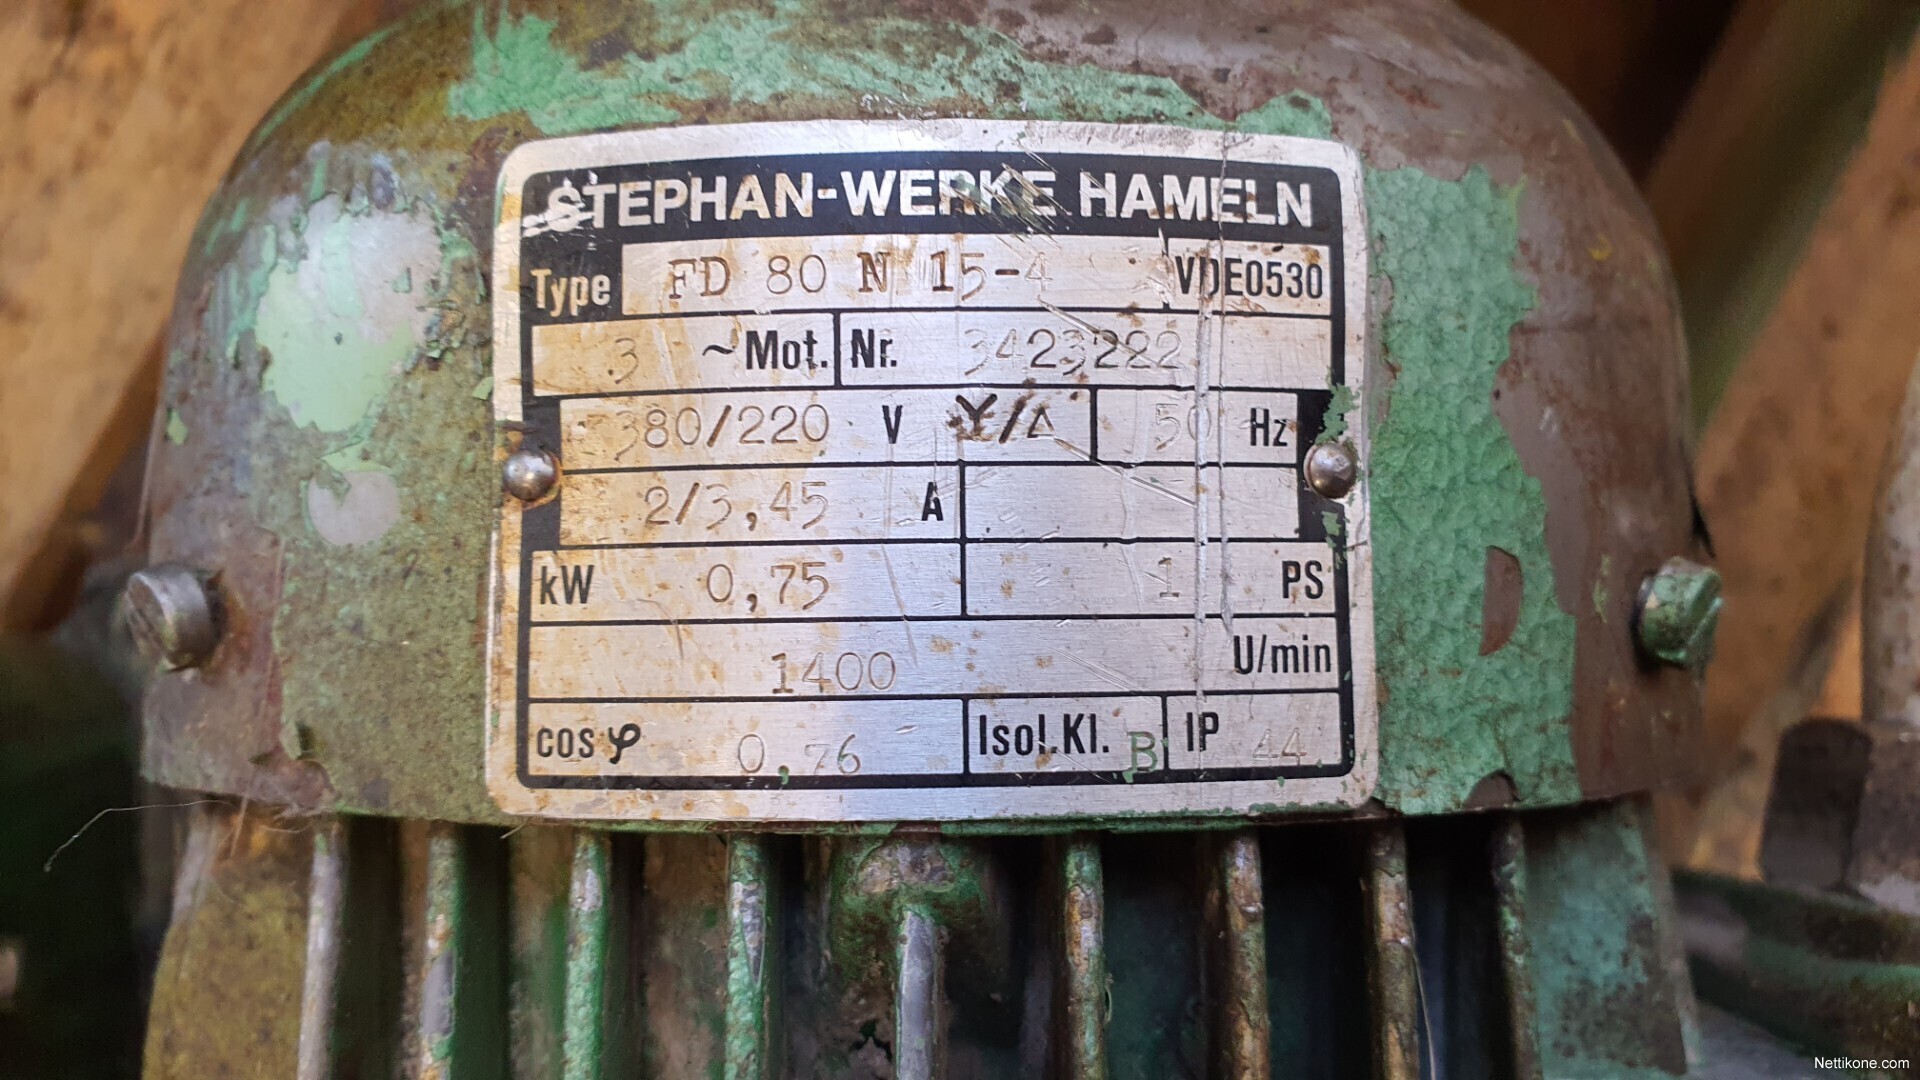 STEPHAN-WERKE HAMELN
Type FD 80 N 15-4 VDE0530
3 ~Mot. Nr. 3423222
380/220 V Y/Δ 50 Hz
2/3,45 A
kW 0,75 1 PS
1400 U/min
cos φ 0,76 Isol.Kl. B IP 44
Nettikone.com